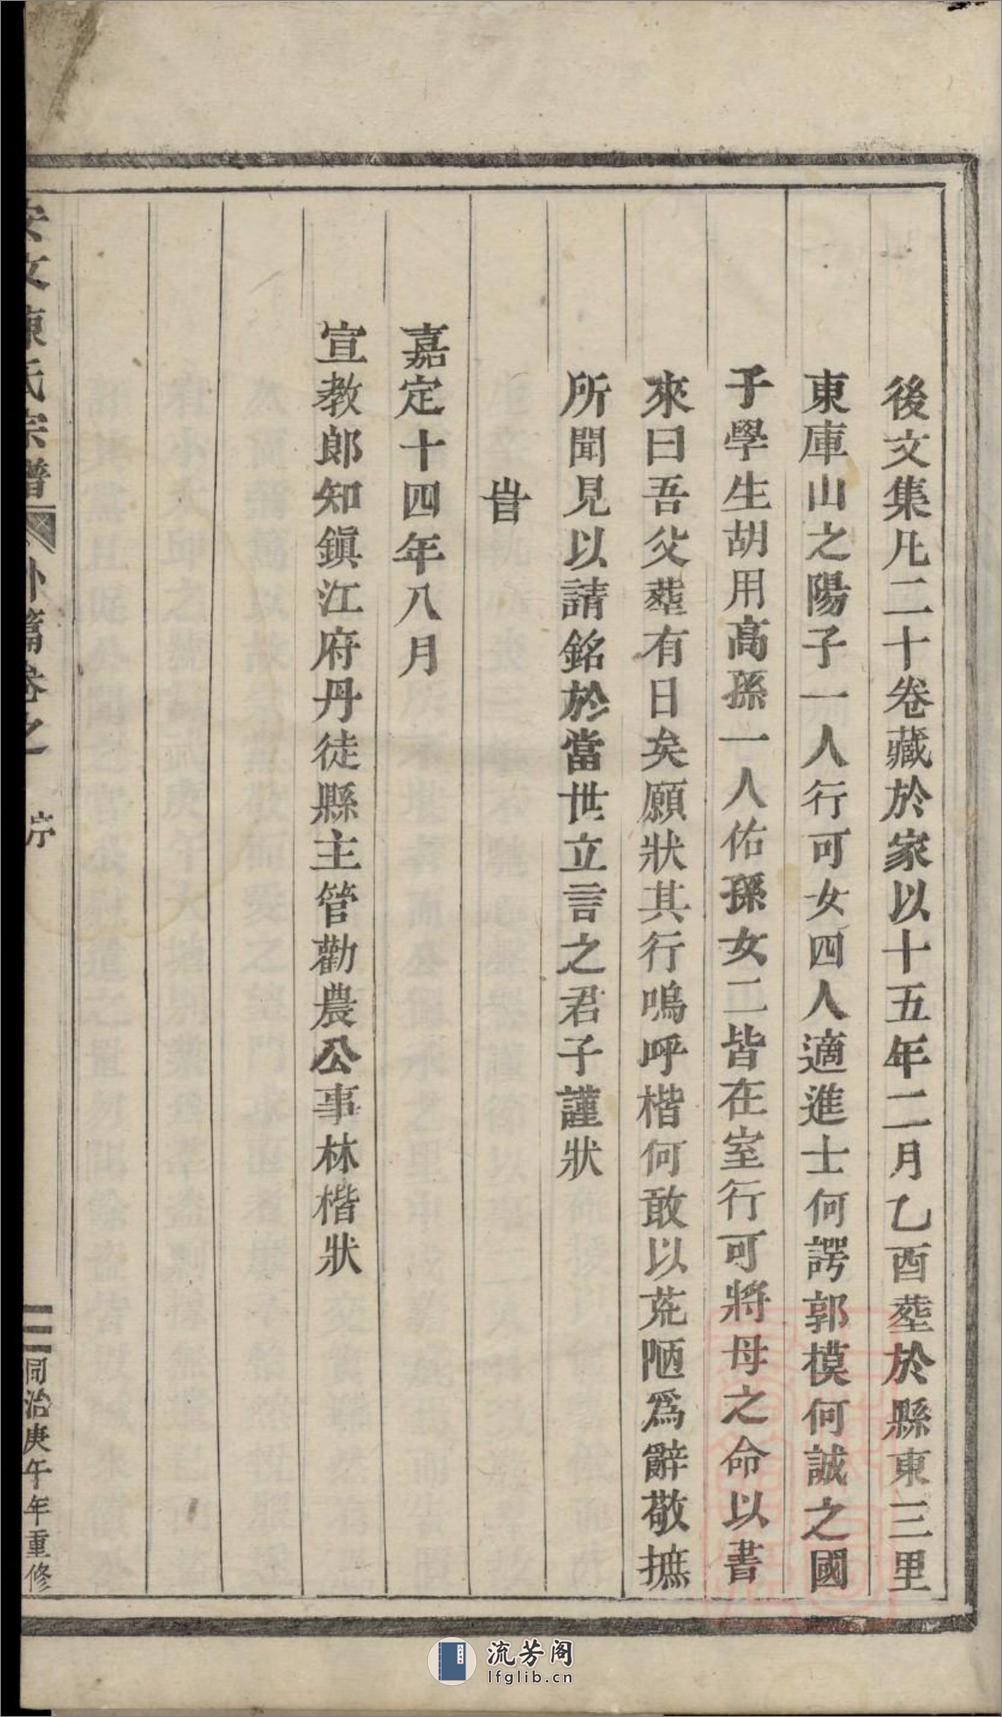 後文集凡二十卷藏於家以十五年二月乙酉塟於縣東三里
東庫山之陽子一人行可女四人適進士何諤郭模何誠之國
子學生胡用高孫一人佑孫女二皆在室行可將母之命以書
來曰吾父塟有日矣願狀其行嗚呼楷何敢以荒陋爲辭敬摭
所聞見以請銘於當世立言之君子謹狀
旹
嘉定十四年八月
宣教郎知鎭江府丹徒縣主管勸農公事林楷狀
安文陳氏宗譜 外篇卷之 序
同治庚午年重修
流芳阁
lfglib.cn